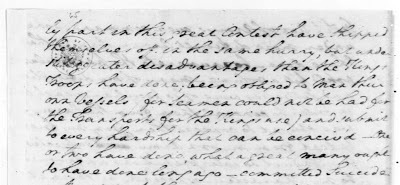 ly part in this great Contest have shipped
themselves off in the same hurry, but unde
greater disadvantages than the Kings
Troops have done, being obliged to Man their
own Vessels for Seamen could not be had for
the Transports for the Kings use) and submit
to every hardship that can be conceived – One
or two have done what a great many ought
to have done long ago – committed Suicide